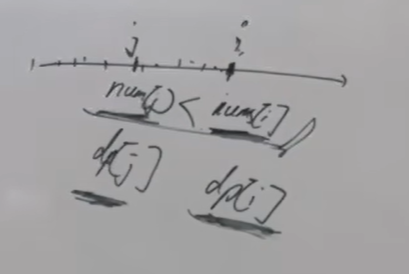 j i
num[j] < num[i]
dp[j] dp[i]